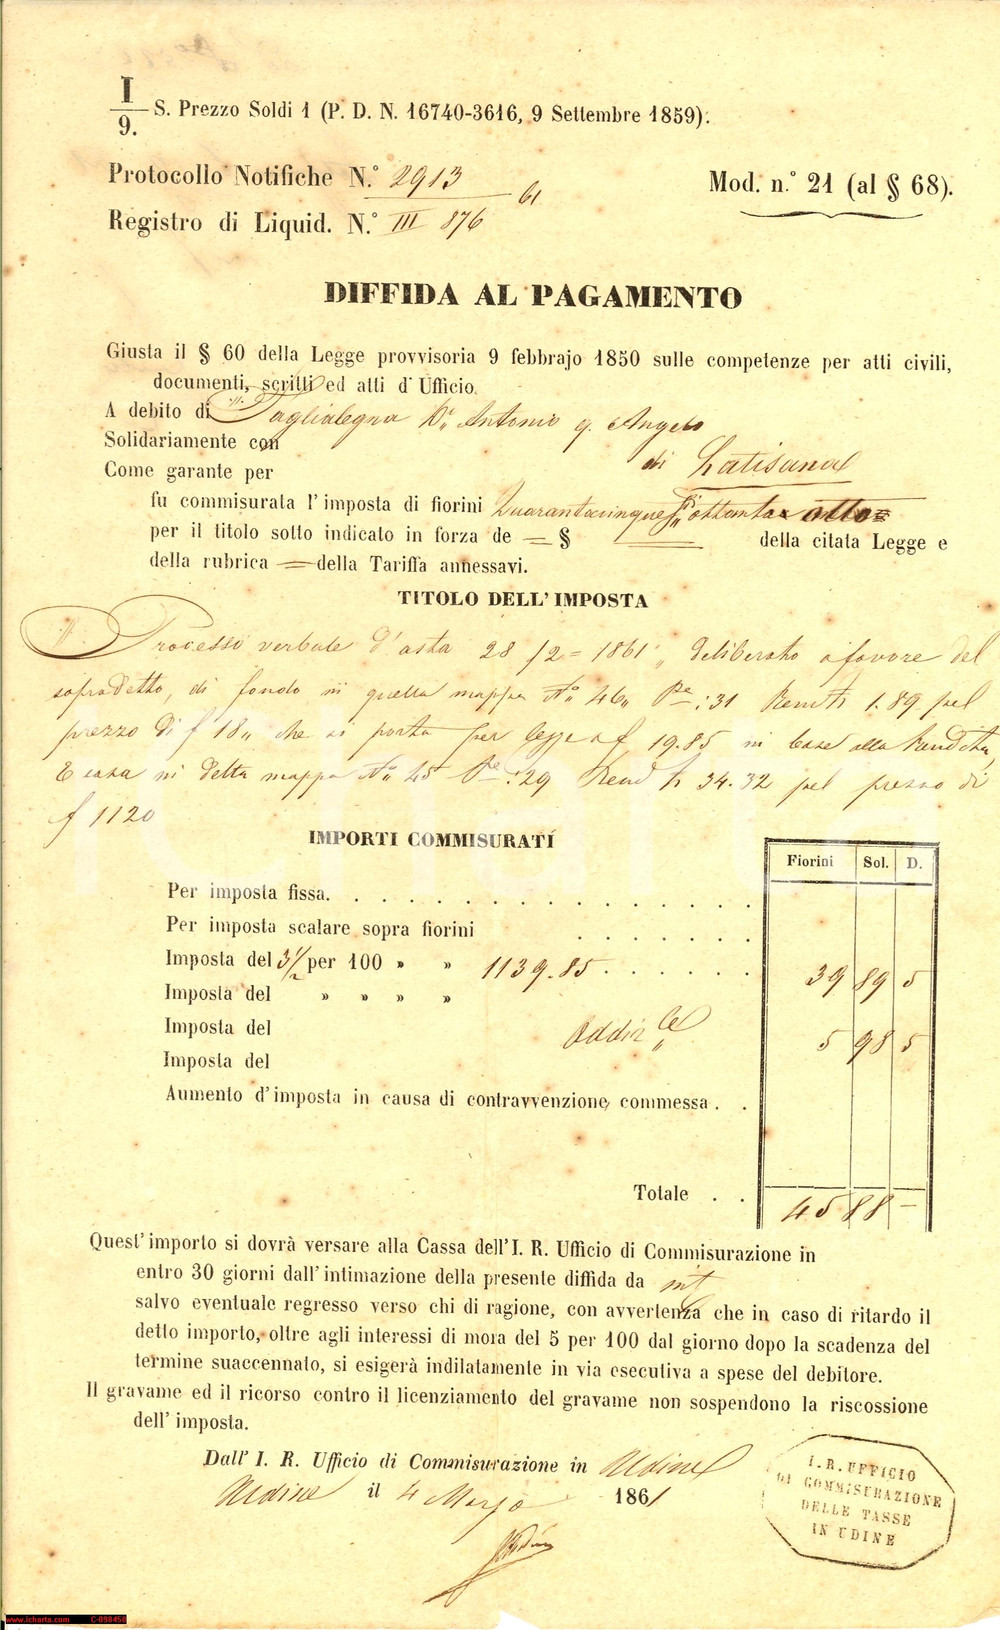 I
9. S. Prezzo Soldi 1 (P. D. N. 16740-3616, 9 Settembre 1859).
Protocollo Notifiche N.° 2913
61
Mod. n.° 21 (al § 68).
Registro di Liquid. N.° III 876
DIFFIDA AL PAGAMENTO
Giusta il § 60 della Legge provvisoria 9 febbrajo 1850 sulle competenze per atti civili,
documenti, scritti ed atti d'Ufficio.
A debito di Taglialegna Dr Antonio q. Angelo
Solidariamente con
di Latisana
Come garante per
fu commisurata l'imposta di fiorini Quarantacinque s. ottanta otto
per il titolo sotto indicato in forza de = § della citata Legge e
della rubrica = della Tariffa annessavi.
TITOLO DELL'IMPOSTA
Processo verbale d'asta 28/2 = 1861 deliberato a favore del
sopradetto, di fondo in quella mappa N° 46 Pe : 31 Rendta 1.89 pel
prezzo di f 18 che si porta per legge a f 19.85 in base alla Rendita,
E casa in detta mappa N° 45 Pe :29 Rend 34.32 pel prezzo di
f 1120
IMPORTI COMMISURATI
Fiorini Sol. D.
Per imposta fissa. . . . . . . . . . . . . . . .
Per imposta scalare sopra fiorini . . . . . . .
Imposta del 3 1/2 per 100 » » 1139.85 . . . . . . 39 89 5
Imposta del » » » »
Imposta del Addizle 5 98 5
Imposta del
Aumento d'imposta in causa di contravvenzione commessa . .
Totale . . 45 88 —
Quest'importo si dovrà versare alla Cassa dell'I. R. Ufficio di Commisurazione in
entro 30 giorni dall'intimazione della presente diffida da
salvo eventuale regresso verso chi di ragione, con avvertenza che in caso di ritardo il
detto importo, oltre agli interessi di mora del 5 per 100 dal giorno dopo la scadenza del
termine suaccennato, si esigerà indilatamente in via esecutiva a spese del debitore.
Il gravame ed il ricorso contro il licenziamento del gravame non sospendono la riscossione
dell'imposta.
Dall'I. R. Ufficio di Commisurazione in Udine
Udine il 4 Marzo 1861
I. R. UFFICIO
DI COMMISURAZIONE
DELLE TASSE
IN UDINE
www.icharta.com C-098450